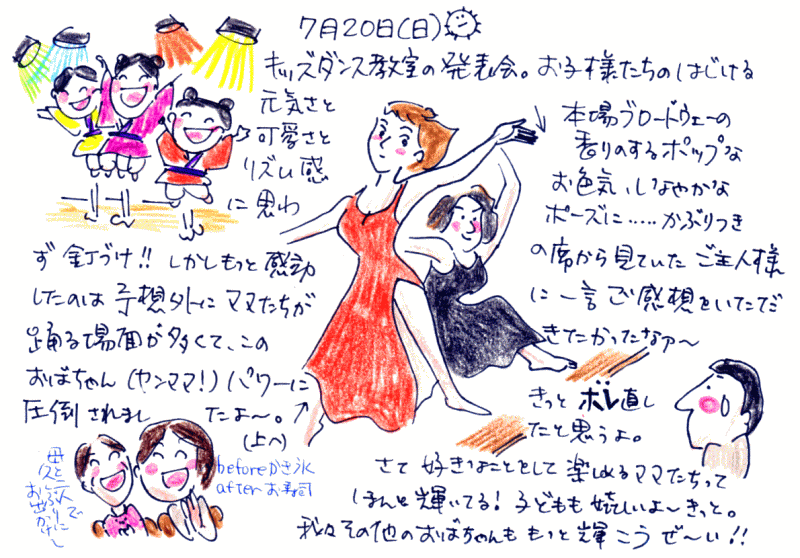 7月20日(日)
キッズダンス教室の発表会。お子様たちのはじける
元気さと
可愛さと
リズム感
に思わ
ず釘づけ!!しかしもっと感動
したのは予想外にママたちが
踊る場面が多くて、この
おばちゃん(ヤンママ!)パワーに
圧倒されまし たよ〜。
(上へ)
本場ブロードウェーの
香りのするポップな
お色気、しなやかな
ポーズに……かぶりつき
の席から見ていたご主人様
に一言ご感想をいただ
きたかったなァ〜
きっとボレ直し
たと思うよ。
さて好きなことをして楽しめるママたちって
ほんと輝いてる!子どもも嬉しいよ〜きっと。
我々その他のおばちゃんももっと輝こうぜ〜い!!
beforeかき氷
afterお寿司